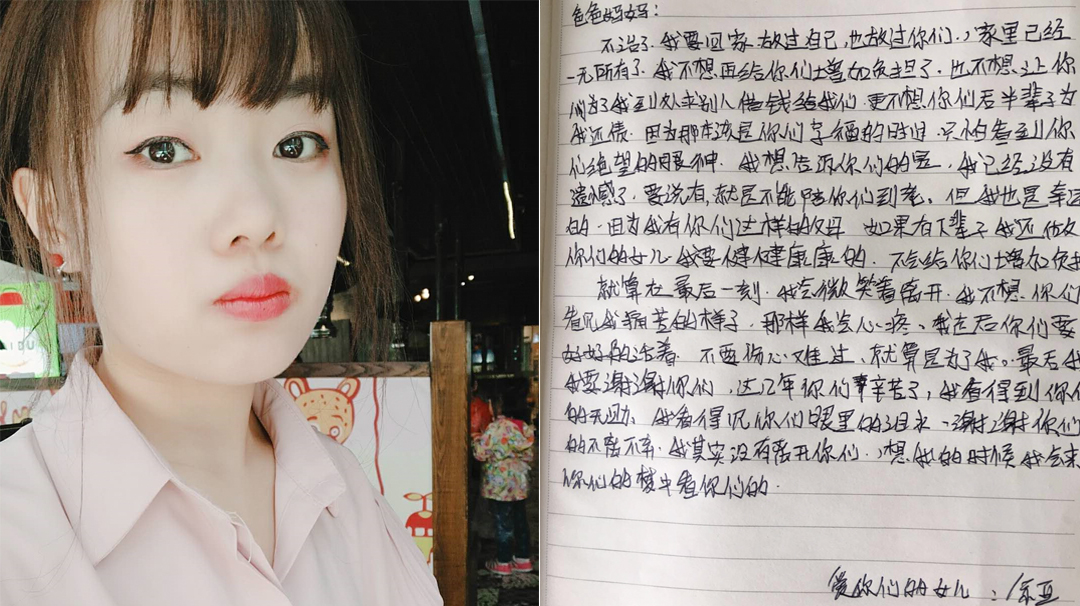 爸爸妈妈：
不治了，我要回家，放过自己，也放过你们，家里已经
一无所有了，我不想再给你们增加负担了，也不想让你
们为了我到处求别人借钱给我们，更不想你们后半辈子为
我还债，因为那本该是你们幸福的时间，只怕看到你
们绝望的眼神，我想告诉你们的是，我已经没有
遗憾了，要说有，就是不能陪你们到老，但我也是幸运
的，因为我有你们这样的父母，如果有下辈子我还做
你们的女儿，我要健健康康的，不会给你们增加负担
就算在最后一刻，我会微笑着离开，我不想，你们
看见我痛苦的样子，那样我会心疼，我走后你们要
好好的活着，不要伤心难过，就算是为了我。最后
我要谢谢你们，这几年你们辛苦了，我看得到你们
的无助，我看得见你们眼里的泪水，谢谢你们
的不离不弃，我其实没有离开你们，想我的时候我会来
你们的梦中看你们的。
爱你们的女儿：